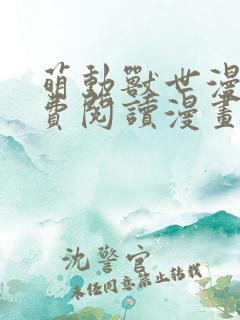 萌動獸世漫
費閱讀漫畫
沈警官
未经同意禁止转载